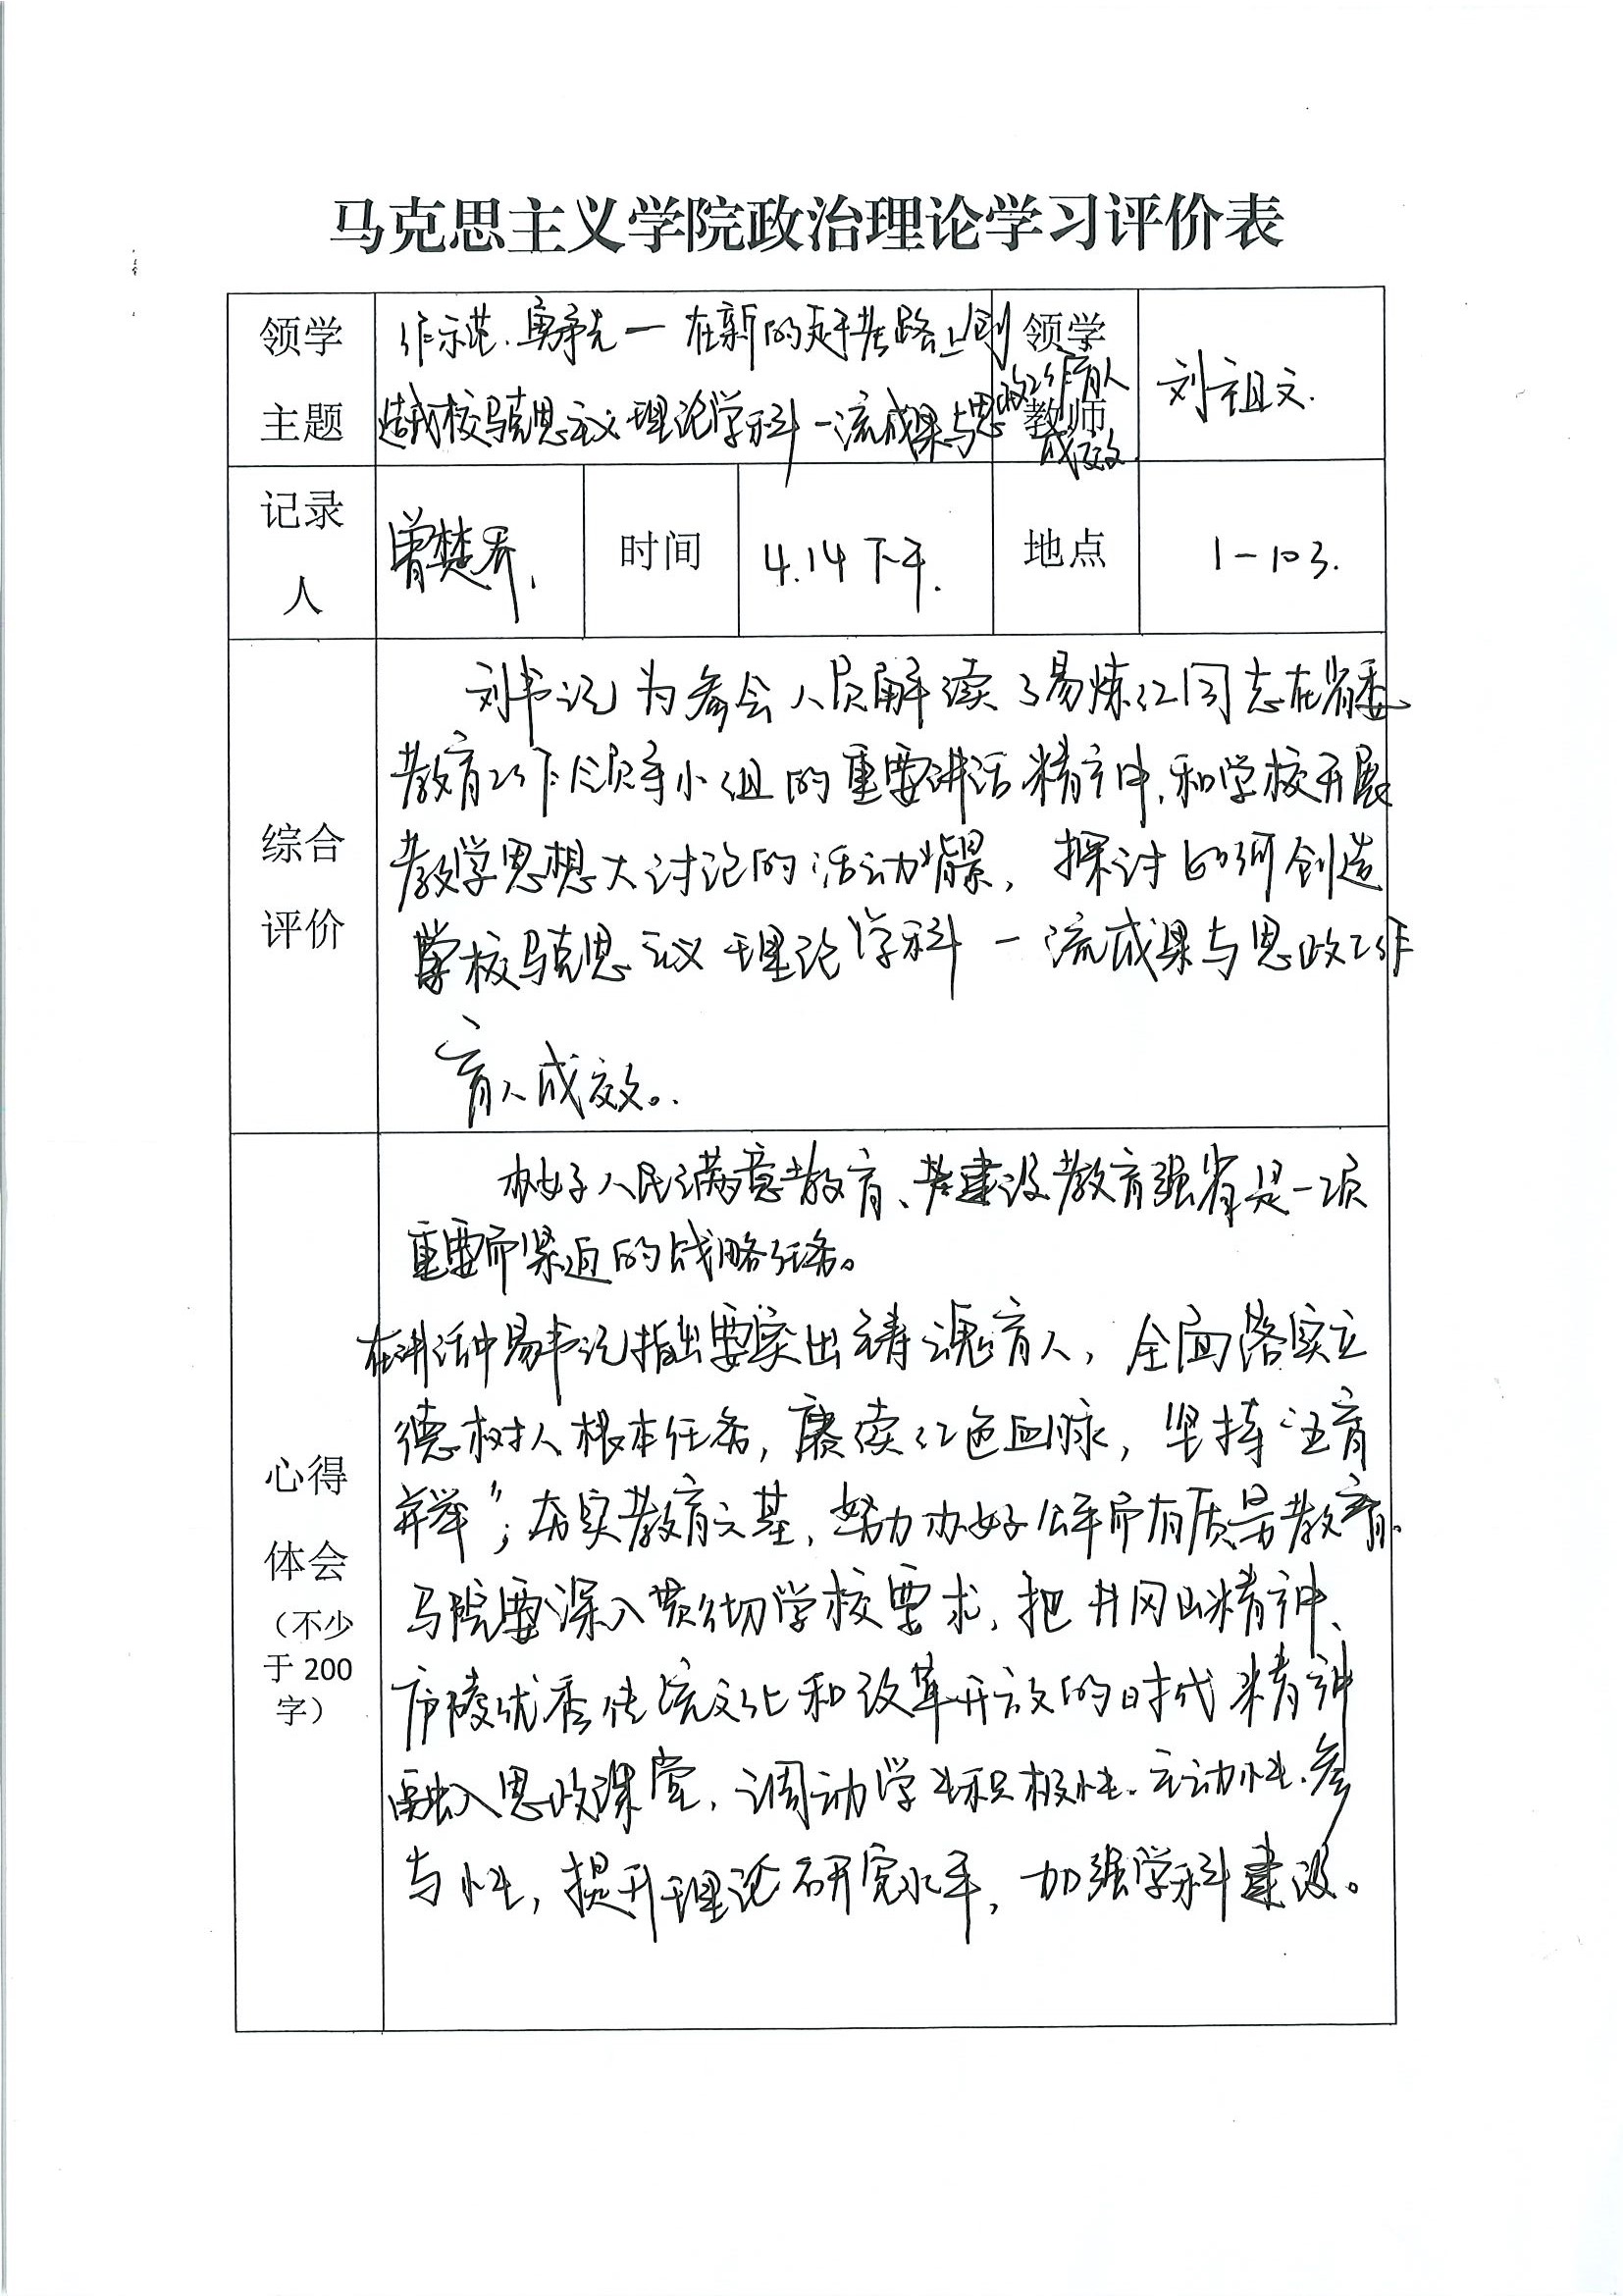 马克思主义学院政治理论学习评价表
领学
主题
作示范、勇争先一在新的赶考路上创
造我校马克思主义理论学科一流成果与思政工作育人
成效
领学
教师
刘祖文.
记录
人
曾楚乔.
时间
4.14 下午.
地点
1-103.
综合
评价
刘书记为参会人员解读了易炼红同志在省委
教育工作领导小组的重要讲话精神,和学校开展
教学思想大讨论的活动背景, 探讨如何创造
学校马克思主义理论学科一流成果与思政工作
育人成效。
心得
体会
(不少
于 200
字)
办好人民满意教育、建设教育强省是一项
重要而紧迫的战略任务。
在讲话中易书记指出要突出铸魂育人, 全面落实立
德树人根本任务, 赓续红色血脉, 坚持“五育
并举”; 夯实教育之基, 努力办好公平而有质量教育.
马院要深入贯彻学校要求, 把井冈山精神、
庐陵优秀传统文化和改革开放的时代精神
融入思政课堂, 调动学生积极性、主动性、参
与性, 提升理论研究水平, 加强学科建设。